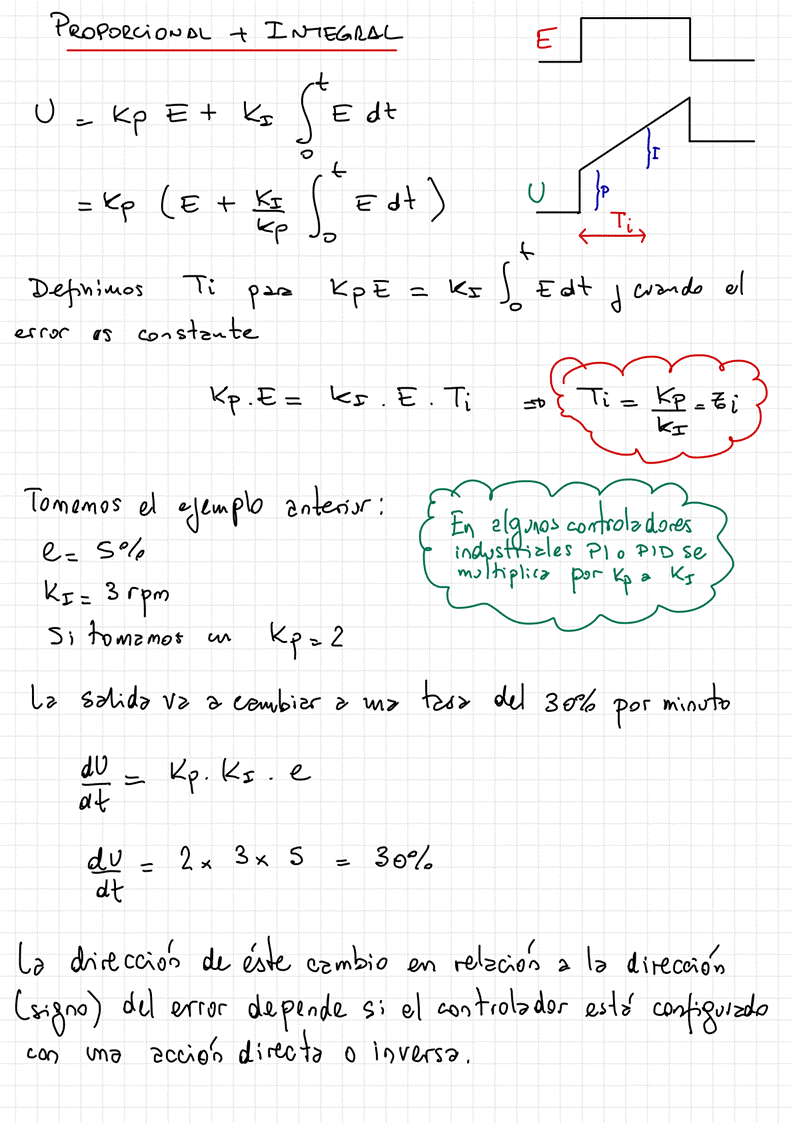 PROPORCIONAL + INTEGRAL
E
U = Kp E + KI ∫₀ᵗ E dt
= Kp (E + KI/Kp ∫₀ᵗ E dt)
U
P
I
Ti
Definimos Ti para KpE = KI ∫₀ᵗ E dt y cuando el
error es constante
Kp.E = KI . E . Ti ⇒ Ti = Kp/KI = τi
Tomemos el ejemplo anterior:
e = 5%
KI = 3 rpm
Si tomamos un Kp = 2
En algunos controladores
industriales PI o PID se
multiplica por Kp a KI
La salida va a cambiar a una tasa del 30% por minuto
dU/dt = Kp . KI . e
dU/dt = 2 x 3 x 5 = 30%
La dirección de éste cambio en relación a la dirección
(signo) del error depende si el controlador está configurado
con una acción directa o inversa.